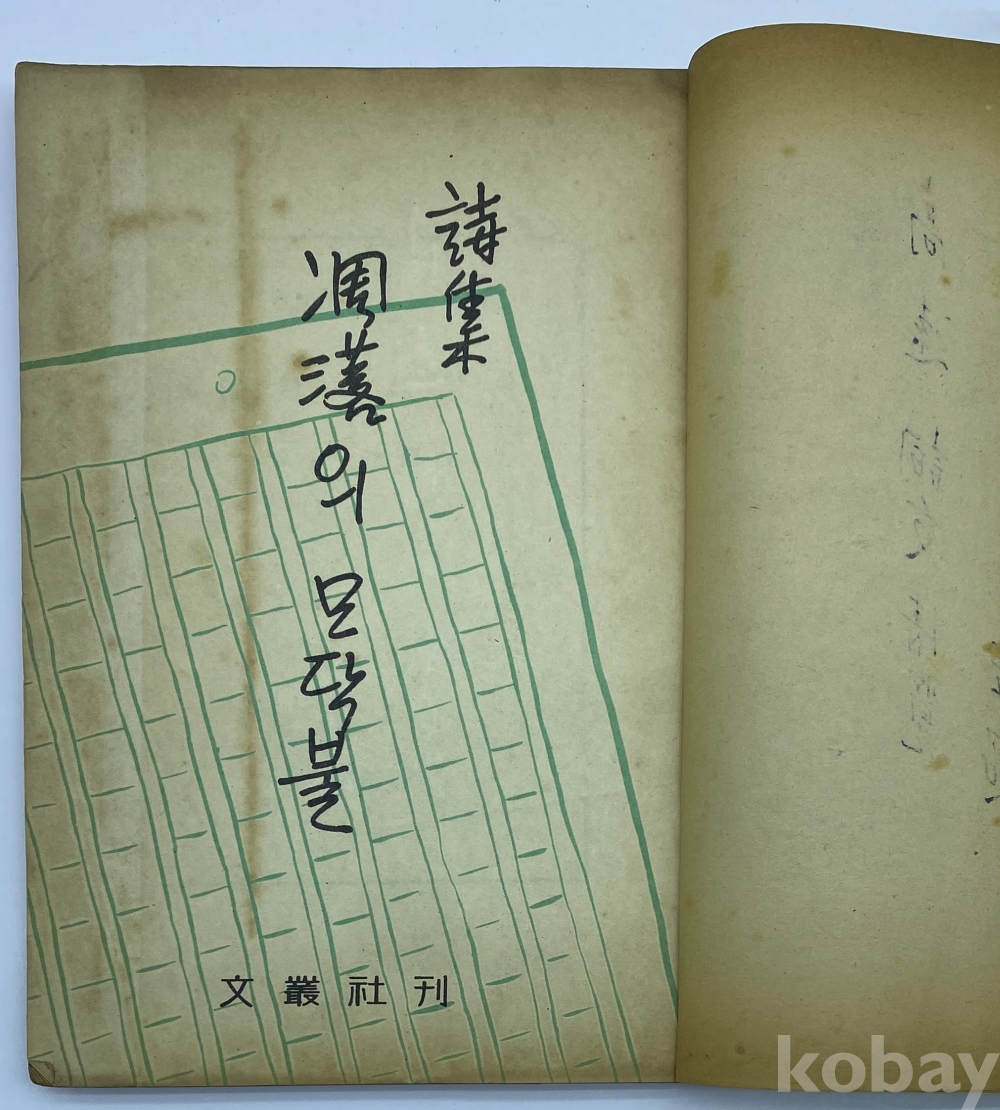 詩集
凋落의 모닥불
文叢社刊
kobay